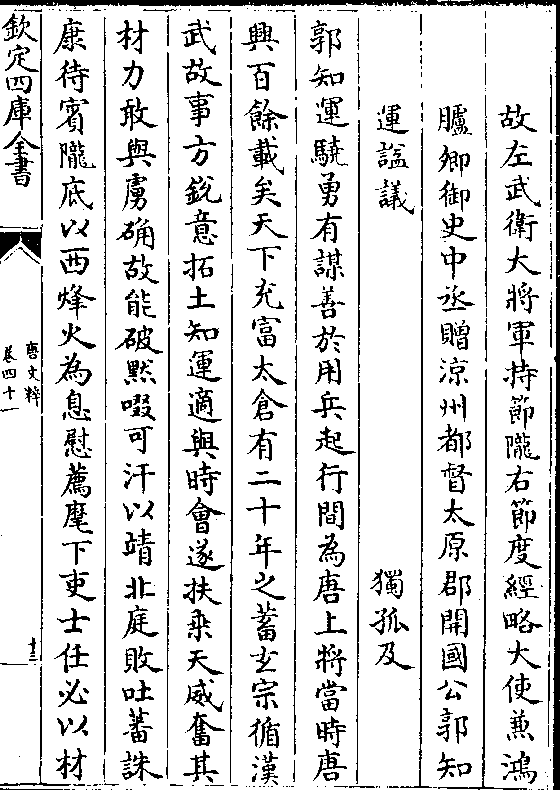 故左武衛大將軍持節隴右節度經略大使兼鴻
臚卿御史中丞贈涼州都督太原郡開國公郭知
運諡議 獨孤及
郭知運驍勇有謀善於用兵起行間為唐上將當時唐
興百餘載矣天下充富太倉有二十年之蓄玄宗循漢
武故事方銳意拓土知運適與時會遂扶乗天威奮其
材力敢與虜确故能破黙啜可汗以靖北庭敗吐蕃誅
康待賓隴底以西烽火為息慰薦麾下吏士任必以材
欽定四庫全書
唐文粹
卷四十一
十三